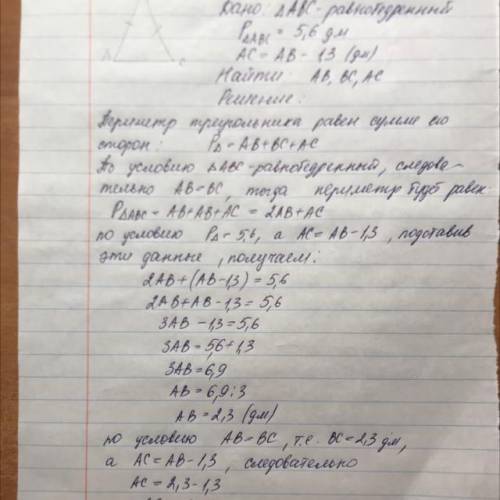 Дано: ΔABC - равнобедренный
P ΔABC = 5,6 дм
AC = AB - 1,3 (дм)
Найти: AB, BC, AC
A C
Решение:
Периметр треугольника равен сумме его
сторон: PΔ = AB+BC+AC
По условию ΔABC - равнобедренный, следова-
тельно AB=BC, тогда периметр будет равен
PΔABC = AB+AB+AC = 2AB+AC
по условию PΔ = 5,6, а AC = AB-1,3, подставив
эти данные, получаем:
2AB+(AB-1,3) = 5,6
2AB+AB-1,3 = 5,6
3AB-1,3 = 5,6
3AB = 5,6+1,3
3AB = 6,9
AB = 6,9:3
AB = 2,3 (дм)
по условию AB=BC, т.е. BC=2,3 дм,
а AC=AB-1,3, следовательно
AC = 2,3-1,3